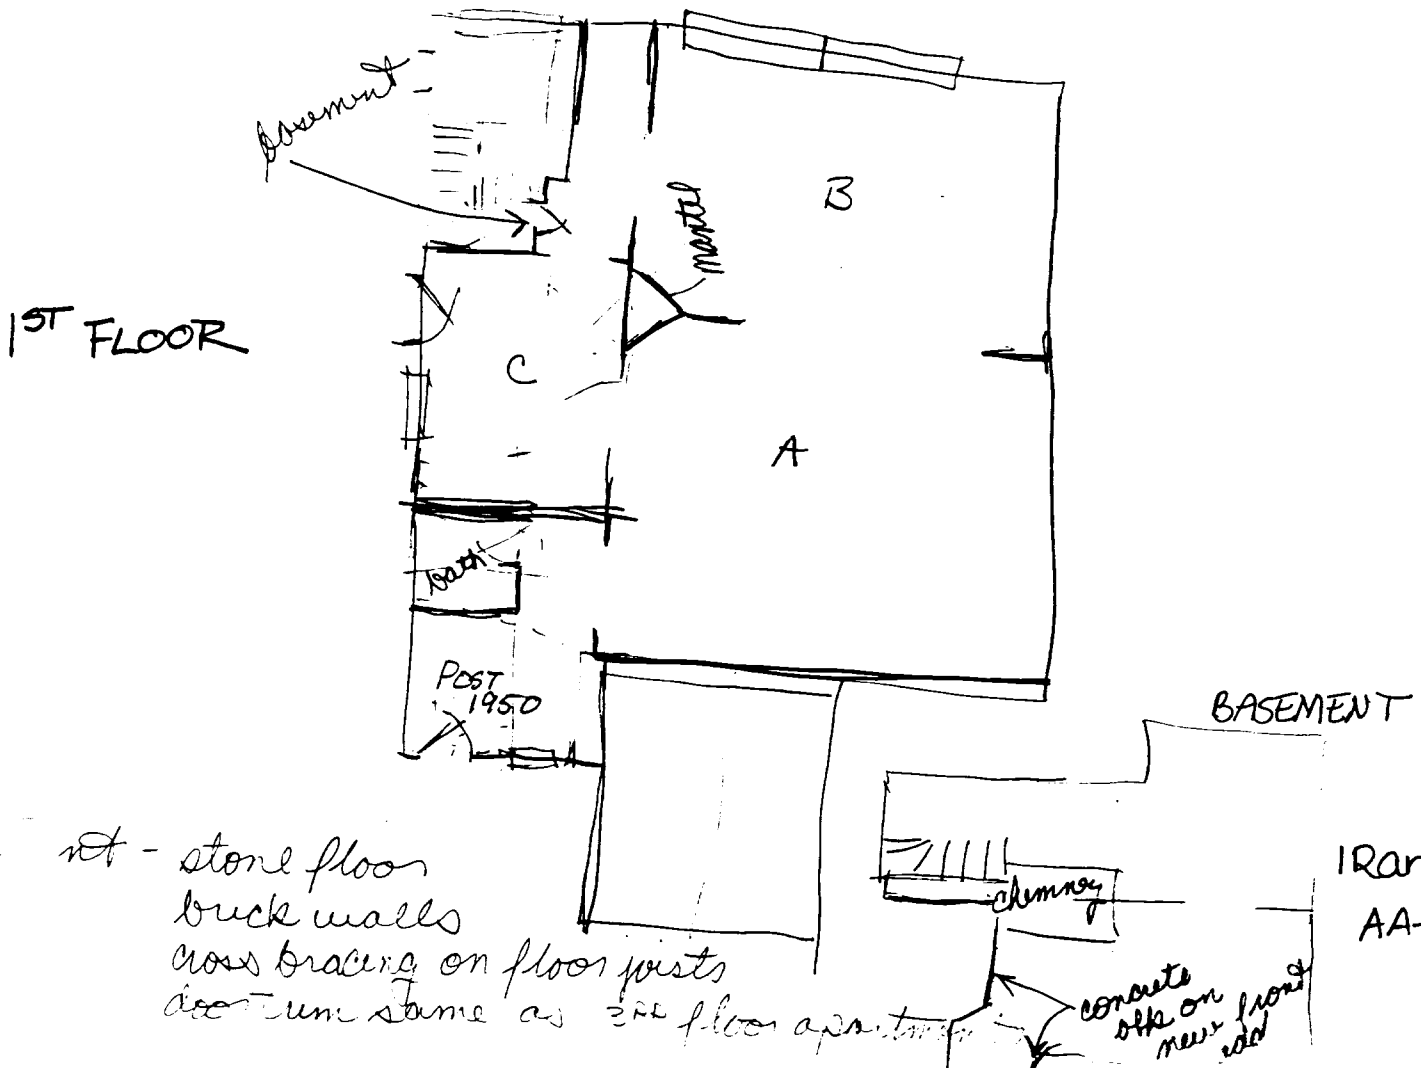 basement
B
mantel
1ST FLOOR
C
A
bath
POST
1950
BASEMENT
nt - stone floor
brick walls
cross bracing on floor joists
door trim same as 3RD floor apartmen
chimney
AA-
concrete
blk on
new front
add